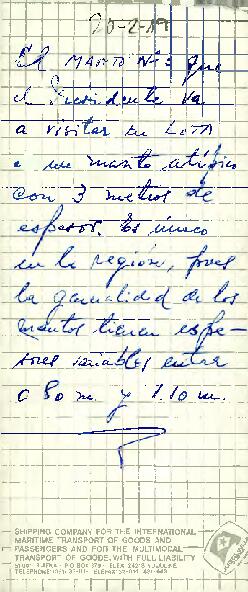 20-2-19
El MANTO Nº 3 que
el Presidente va
a visitar en LOTA
e un manto atípico
con 3 metros de
espesor. Es único
en la región, pues
la generalidad de los
mantos tienen espe-
sores variables entre
0.80 m. y 1.10 m.
SHIPPING COMPANY FOR THE INTERNATIONAL
MARITIME TRANSPORT OF GOODS AND
PASSENGERS AND FOR THE MULTIMODAL
TRANSPORT OF GOODS, WITH FULL LIABILITY
51001 RIJEKA - P.O. BOX 379